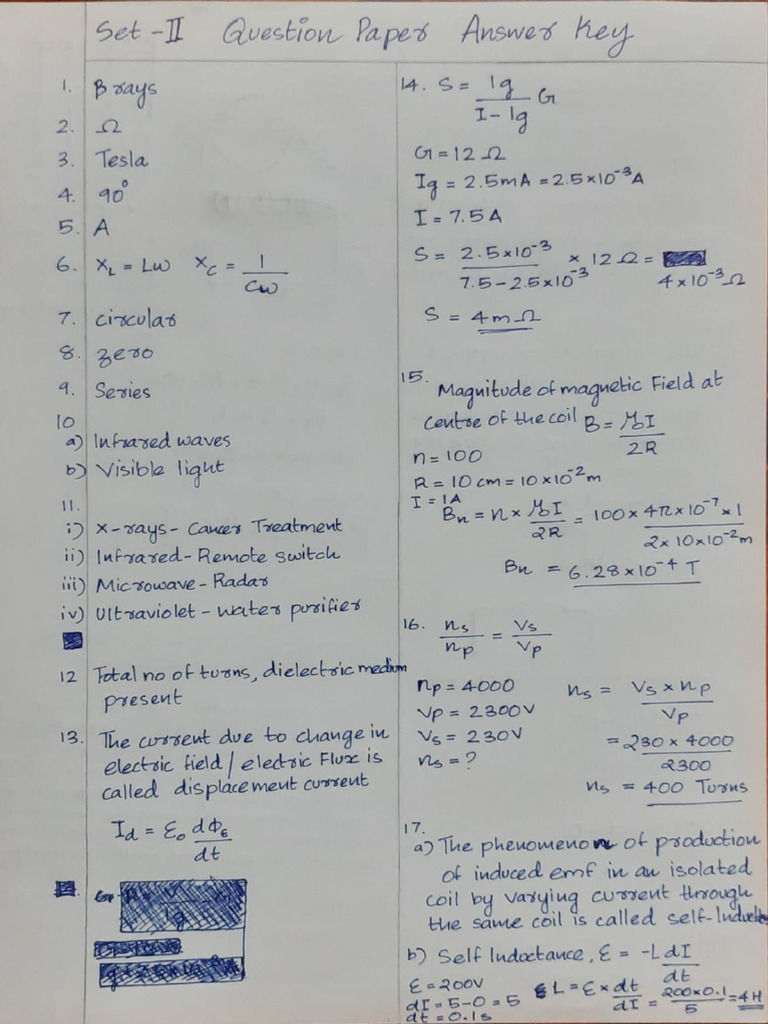 Set-II Question Paper Answer Key
1. β rays
2. Ω
3. Tesla
4. 90°
5. A
6. X_L = Lω X_C = 1/Cω
7. circular
8. zero
9. Series
10
a) Infrared waves
b) Visible light
11.
i) X-rays - Cancer Treatment
ii) Infrared - Remote switch
iii) Microwave - Radar
iv) Ultraviolet - water purifier
12 Total no of turns, dielectric medium
present
13. The current due to change in
electric field / electric Flux is
called displacement current
I_d = ε₀ dΦ_E/dt
14. S = Ig/(I - Ig) G
G = 12 Ω
Ig = 2.5mA = 2.5×10⁻³A
I = 7.5A
S = 2.5×10⁻³/(7.5 - 2.5×10⁻³) × 12 Ω =
4×10⁻³Ω
S = 4mΩ
15. Magnitude of magnetic Field at
centre of the coil B = μ₀I/2R
n = 100
R = 10 cm = 10×10⁻²m
I = 1A
Bn = n × μ₀I/2R = 100 × 4π×10⁻⁷×1/(2×10×10⁻²m)
Bn = 6.28×10⁻⁴ T
16. ns/np = Vs/Vp
np = 4000 ns = Vs × np/Vp
Vp = 2300V
Vs = 230V = 230 × 4000/2300
ns = ?
ns = 400 Turns
17.
a) The phenomenon of production
of induced emf in an isolated
coil by varying current through
the same coil is called self-
b) Self Inductance, ε = -L dI/dt
ε = 200V L = ε × dt/dI = 200×0.1/5 = 4H
dI = 5-0 = 5
dt = 0.1s